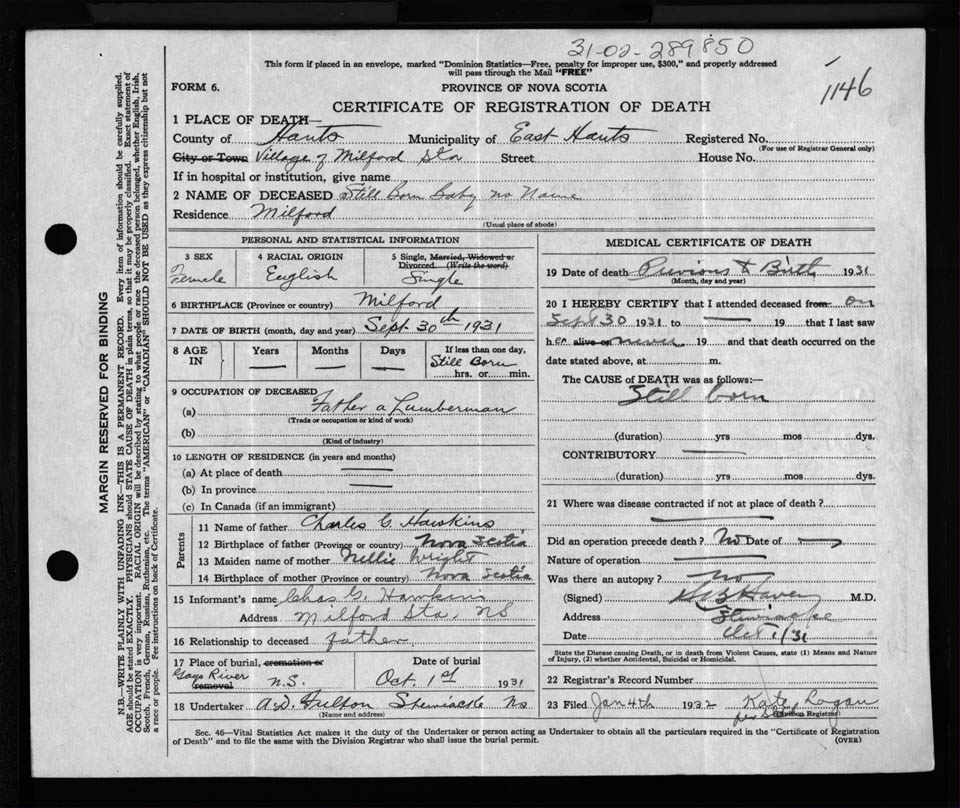 31-02-289850
1146
This form if placed in an envelope, marked "Dominion Statistics—Free, penalty for improper use, $300," and properly addressed
will pass through the Mail "FREE"
FORM 6.
PROVINCE OF NOVA SCOTIA
CERTIFICATE OF REGISTRATION OF DEATH
1 PLACE OF DEATH—
County of Hants Municipality of East Hants Registered No.
(For use of Registrar General only)
City or Town Village of Milford Sta Street House No.
If in hospital or institution, give name
2 NAME OF DECEASED Still Born baby no Name
Residence Milford
(Usual place of abode)
PERSONAL AND STATISTICAL INFORMATION
3 SEX
Female
4 RACIAL ORIGIN
English
5 Single, Married, Widowed or
Divorced. (Write the word)
Single
6 BIRTHPLACE (Province or country) Milford
7 DATE OF BIRTH (month, day and year) Sept 30th 1931
8 AGE IN
Years
Months
Days
If less than one day,
Still Born
hrs. or min.
9 OCCUPATION OF DECEASED
(a) Father a Lumberman
(Trade or occupation or kind of work)
(b)
(Kind of industry)
10 LENGTH OF RESIDENCE (in years and months)
(a) At place of death
(b) In province
(c) In Canada (if an immigrant)
Parents
11 Name of father Charles G. Hawkins
12 Birthplace of father (Province or country) Nova Scotia
13 Maiden name of mother Nellie Wright
14 Birthplace of mother (Province or country) Nova Scotia
15 Informant's name Chas G. Hawkins
Address Milford Sta, NS
16 Relationship to deceased father
17 Place of burial, cremation or
removal
Gays River
N.S.
Date of burial
Oct 1st 1931
18 Undertaker A.D. Fulton Shewiacke Ns
(Name and address)
MEDICAL CERTIFICATE OF DEATH
19 Date of death Previous to Birth 1931
(Month, day and year)
20 I HEREBY CERTIFY that I attended deceased from: on
Sept 30 1931 to 19 that I last saw
her alive on never 19 and that death occurred on the
date stated above, at m.
The CAUSE of DEATH was as follows:—
Still born
(duration) yrs mos dys.
CONTRIBUTORY
(duration) yrs mos dys.
21 Where was disease contracted if not at place of death?
Did an operation precede death? No Date of
Nature of operation
Was there an autopsy? no
(Signed) M.D.
Address Stewiacke
Date Oct 1/31
State the Disease causing Death, or in death from Violent Causes, state (1) Means and Nature
of Injury, (2) whether Accidental, Suicidal or Homicidal.
22 Registrar's Record Number
23 Filed Jan 4th 1932 Kate Logan
Division Registrar
Sec. 46—Vital Statistics Act makes it the duty of the Undertaker or person acting as Undertaker to obtain all the particulars required in the "Certificate of Registration
of Death" and to file the same with the Division Registrar who shall issue the burial permit.
(OVER)
MARGIN RESERVED FOR BINDING
N.B.—WRITE PLAINLY WITH UNFADING INK—THIS IS A PERMANENT RECORD. Every item of information should be carefully supplied.
AGE should be stated EXACTLY. PHYSICIANS should STATE CAUSE OF DEATH in plain terms, so that it may be properly classified. Exact statement of
OCCUPATION is very important. RACIAL ORIGIN will be described by stating to what people or race the deceased person belonged, whether English, Irish,
Scotch, French, German, Russian, Ruthenian, etc. The terms "AMERICAN" or "CANADIAN" SHOULD NOT BE USED as they express citizenship but not
a race or people. Fee instructions on back of Certificate.